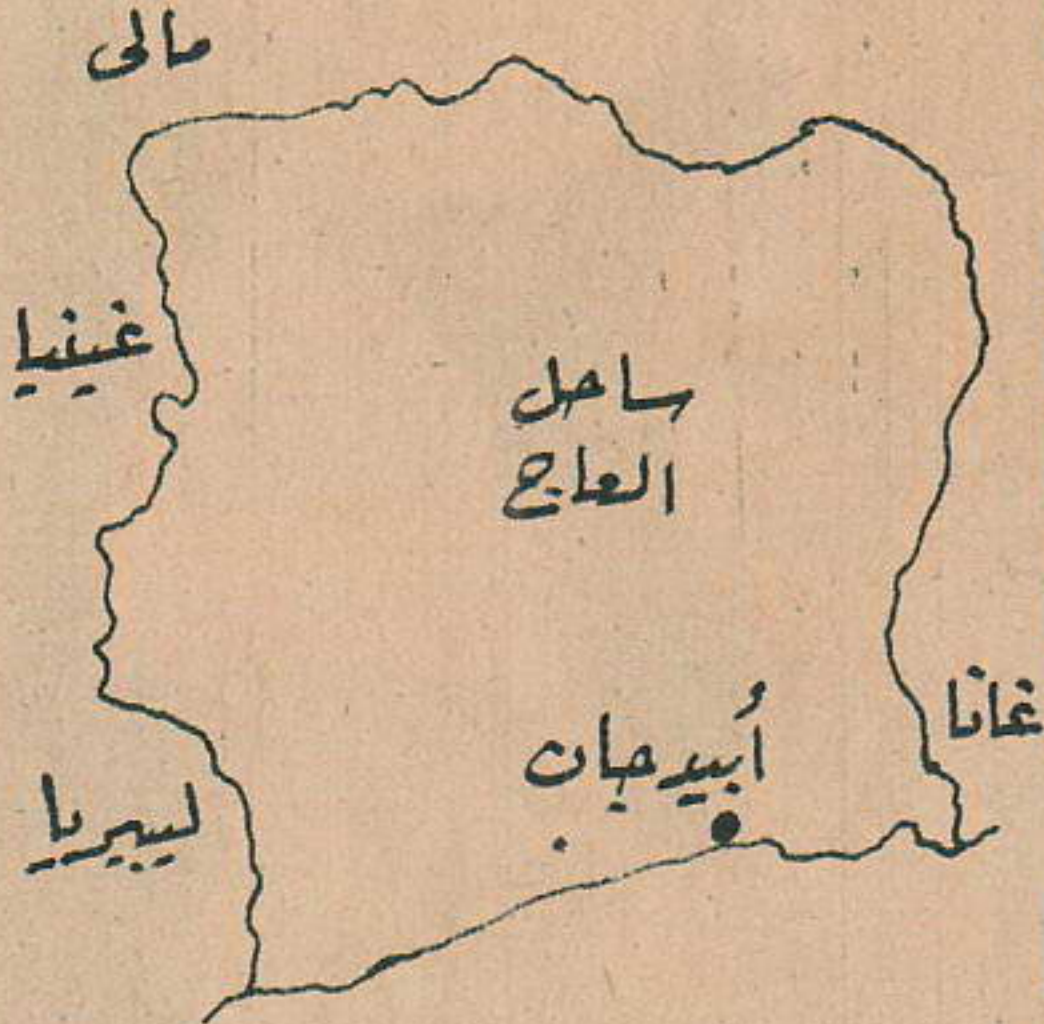 مالى
غينيا
ساحل
العاج
غانا
أبيدجان
ليبيريا